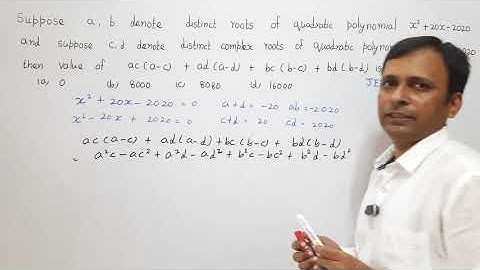 Suppose a, b denote distinct roots of quadratic polynomial x² + 20x - 2020
and suppose c, d denote distinct complex roots of quadratic polynom 2020
then value of ac(a-c) + ad(a-d) + bc(b-c) + bd(b-d) is
(a) 0 (b) 8000 (c) 8080 (d) 16000 JE
x² + 20x - 2020 = 0 a+d = -20 ab = -2020
x² - 20x + 2020 = 0 c+d = 20 cd = 2020
ac(a-c) + ad(a-d) + bc(b-c) + bd(b-d)
= a²c - ac² + a²d - ad² + b²c - bc² + b²d - bd²